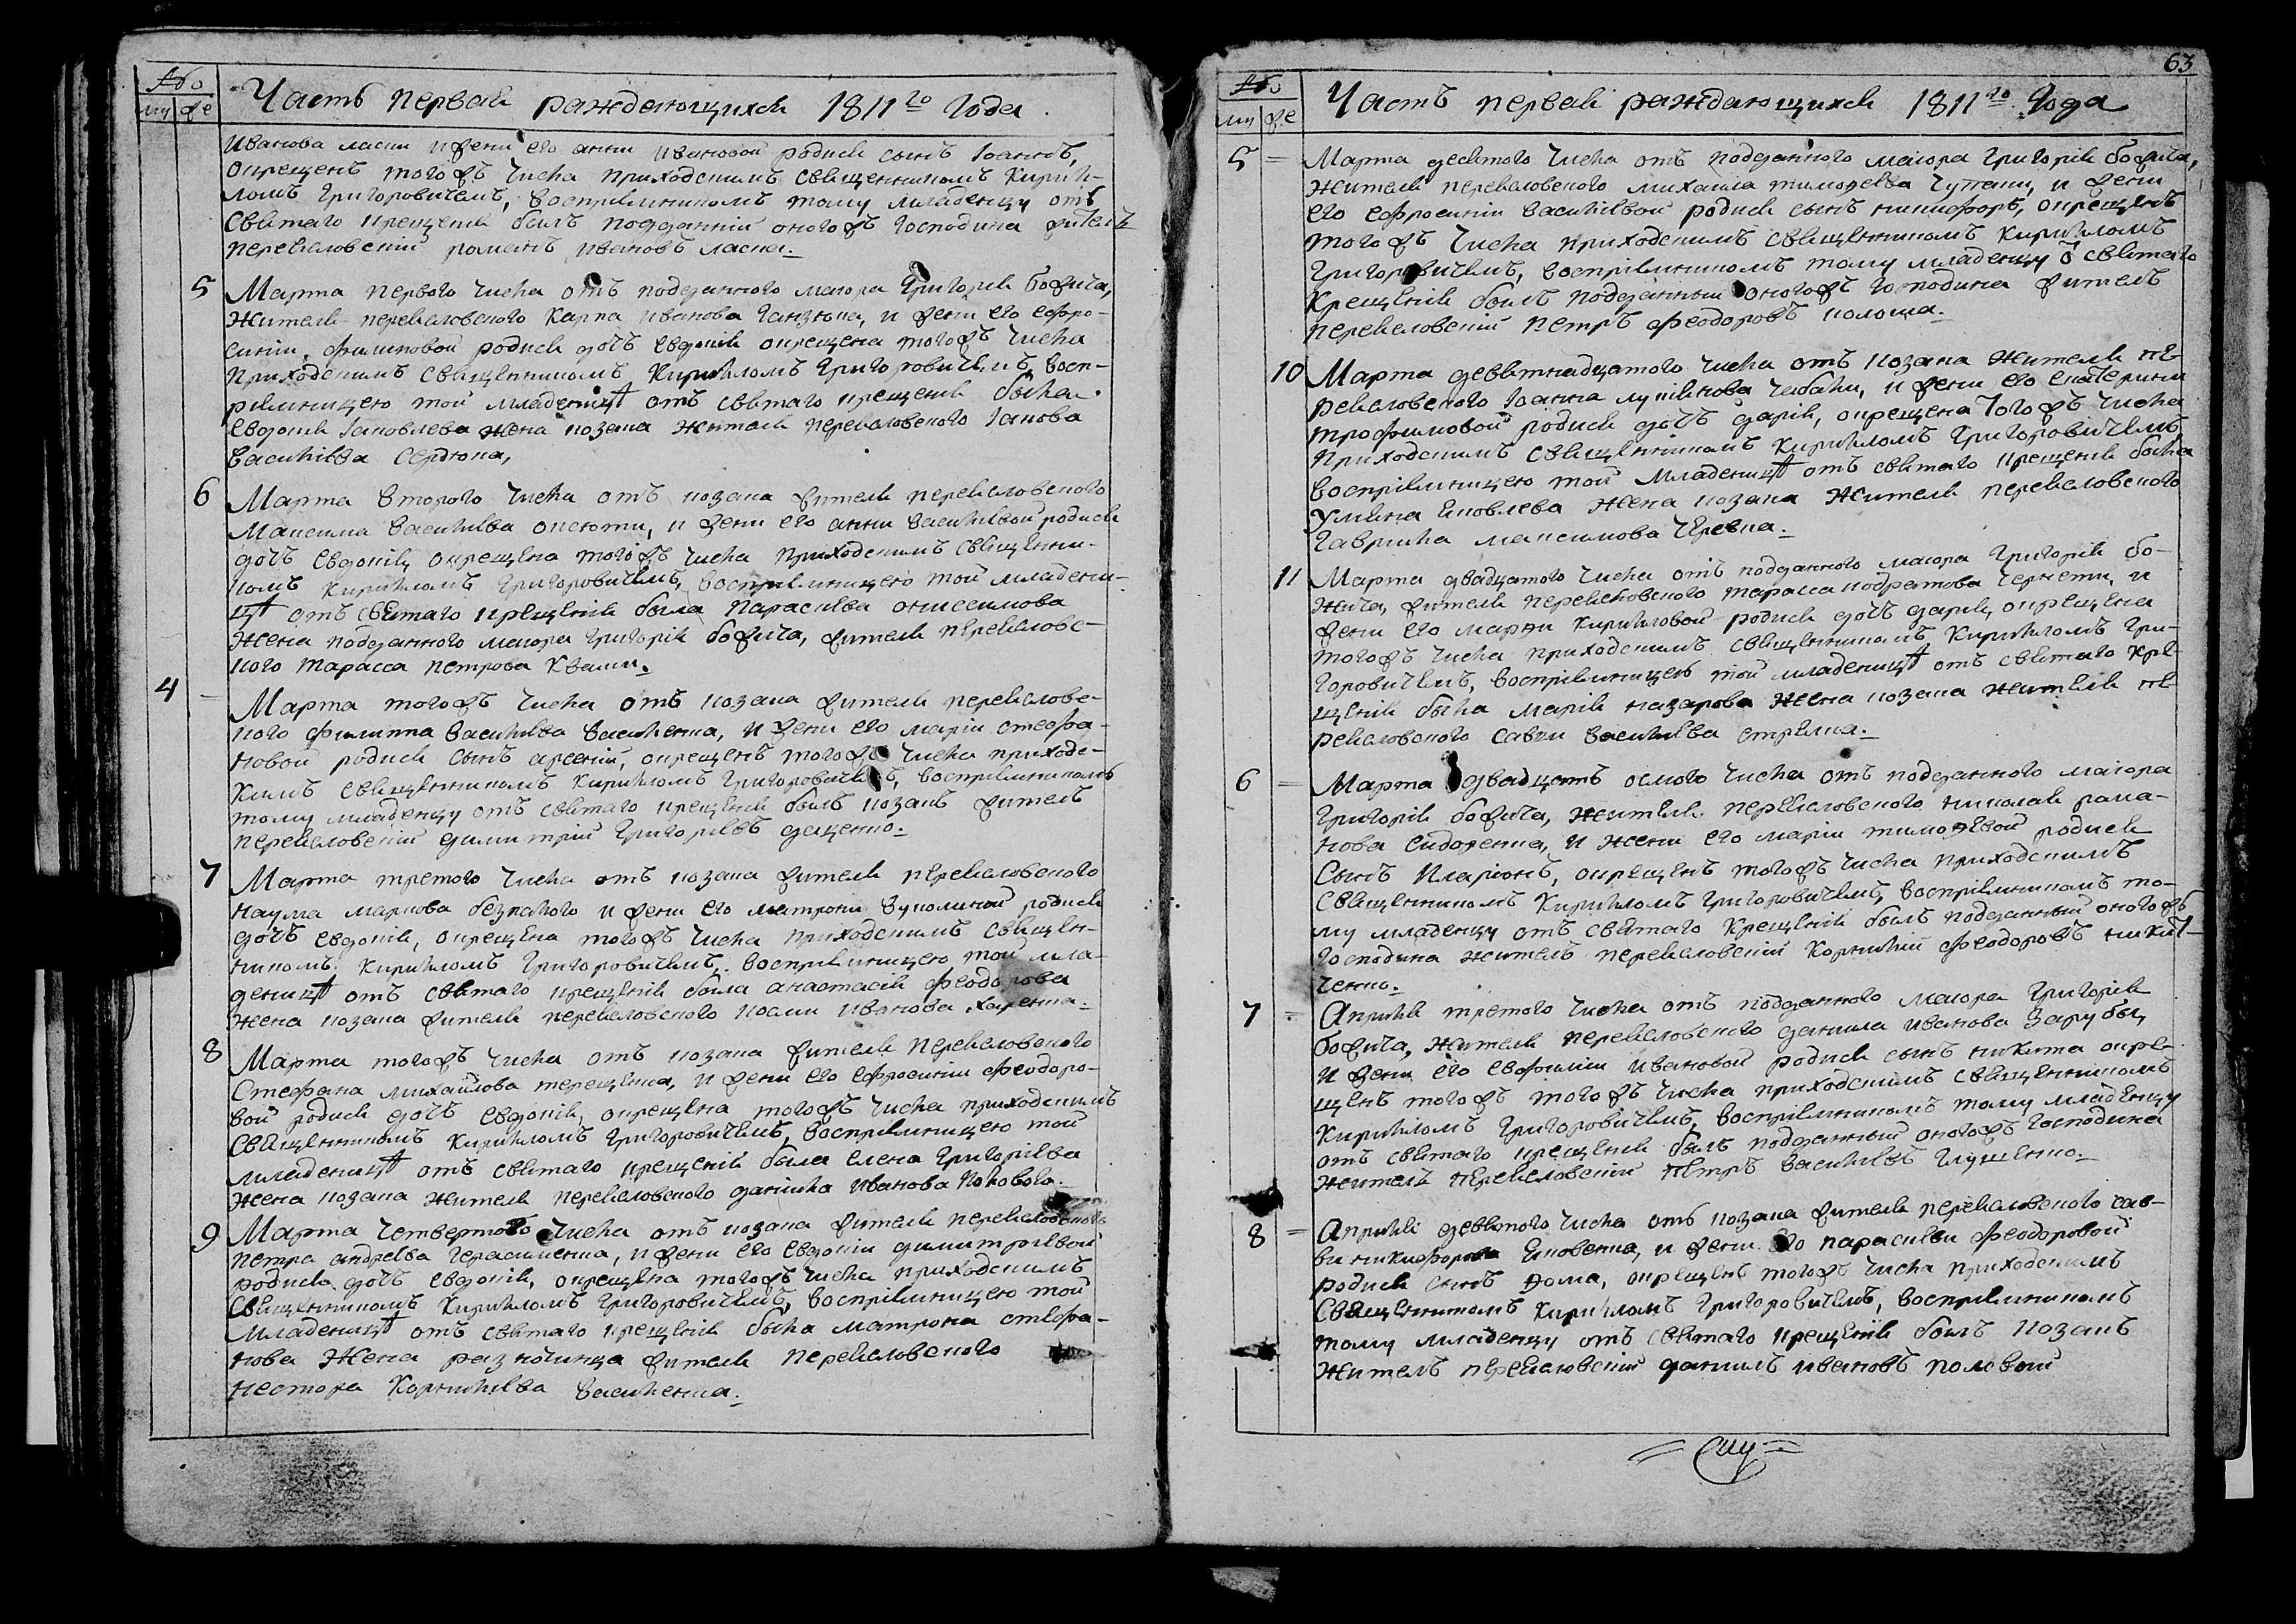 Або
му фе
Часть первая раждающихся 1811го Года
Иванова ласки и жени его анни ивановой родися сынъ Іоаннъ,
окрещенъ тогожъ числа приходскимъ священникомъ Кирил-
ломъ Григоровичемъ, восприемникомъ тому младенцу отъ
святаго крещенія былъ подданній оногожъ Господина жителъ
переяловскій романъ ивановъ ласка.
5 Марта первого числа отъ подданного маіора Григорія божича,
жителя переяловского Карпа иванова Ганзюка, и жени его ефро-
синіи филиповой родися дочъ евдокія окрещена тогожъ числа
приходскимъ священникомъ Кирилломъ Григоровичемъ, восп-
ріемницею той младеницѣ отъ святаго крещенія была
Евдокія Іаковлева жена козака жителя переяловского Іакова
Василіева Сердюка,
6 Марта второго числа отъ козака жителя переяловского
Максима Василіева оксюти, и жени его анни василіевой родися
дочъ евдокія, окрещена тогожъ числа приходскимъ священни-
комъ Кирилломъ Григоровичемъ, восприемницею той младени-
цѣ отъ святаго крещенія была Параскева онисимова
жена подданного маіора Григорія божича, жителя переяловс-
кого тарасса петрова Кваши.
4 – Марта тогожъ числа отъ козака жителя переяловс-
кого филиппа василіева василенка, и жени его маріи стефа-
новой родися сынъ арсеній, окрещенъ тогожъ числа приходс-
кимъ священникомъ Кирилломъ Григоровичемъ, восприемникомъ
тому младенцу отъ святаго крещенія былъ козакъ жителъ
переяловскій димитрій Григоріевъ даценко.
7 Марта третого числа отъ козака жителя переяловского
наума маркова безпалого и жени его матрони родися
дочъ евдокія, окрещена тогожъ числа приходскимъ священ-
никомъ Кирилломъ Григоровичемъ, восприемницею той мла-
деницѣ отъ святаго крещенія была анастасія феодорова
жена козака жителя переяловского иванова
8 Марта тогожъ числа отъ козака жителя переяловского
Стефана михайлова терещенка, и жени его ефросиніи феодоро-
вой родися дочъ евдокія, окрещена тогожъ числа приходскимъ
Священникомъ Кирилломъ Григоровичемъ, восприемницею той
младеницѣ отъ святаго крещенія была елена Григоріева
жена козака жителя переяловского даниила иванова полового.
9 Марта четвертого числа отъ козака жителя переяловского
петра андреева Герасименка, и жени его евдокіи димитріевой
родися дочъ евдокія, окрещена тогожъ числа приходскимъ
Священникомъ Кирилломъ Григоровичемъ, восприемницею той
младеницѣ отъ святаго крещенія была матрона стефа-
нова жена разночинца жителя переяловского
нестора Корниліева василенка.
63
Або
му фе
Часть первая раждающихся 1811го Года
5 = Марта десятого числа отъ подданного маіора Григорія божича,
жителя переяловского михаила тимофеева Чупани, и жени
его ефросиніи василіевой родися сынъ никифоръ, окрещенъ
тогожъ числа приходскимъ священникомъ Кирилломъ
Григоровичемъ, восприемникомъ тому младенцу ѿ святаго
крещенія былъ подданный оногожъ Господина жителъ
переяловскій петръ феодоровъ колоша.
10 Марта девятнадцатого числа отъ козака жителя пе-
реяловского Іоанна лукіянова чабана, и жени его екатерини
трофимовой родися дочъ дарія, окрещена тогожъ числа
приходскимъ священникомъ Кирилломъ Григоровичемъ,
восприемницею той младеницѣ отъ святаго крещенія была
уліяна яковлева жена козака жителя переяловского
Гавриила максимова червяка.
11 Марта двадцатого числа отъ подданного маіора Григорія бо-
жича, жителя переяловского тарасса кодратова чернети, и
жени его марфи Кирилловой родися дочъ дарія, окрещена
тогожъ числа приходскимъ священникомъ Кирилломъ Гри-
горовичемъ, восприемницею той младеницѣ отъ святаго кре-
щенія была марія назарова жена козака жителя пе-
реяловского саввы василіева стрелка.
6 = Марта двадцять осмого числа отъ подданного маіора
Григорія божича, жителя переяловского николая рома-
нова Сидоренка, и жени его маріи тимофеевой родися
Сынъ Иларіонъ, окрещенъ тогожъ числа приходскимъ
Священникомъ Кирилломъ Григоровичемъ, восприемникомъ то-
му младенцу отъ святаго Крещенія былъ подданный оногожъ
Господина жителъ переяловскій Корнилій феодоровъ никит-
ченко.
7 = Апрыля третого числа отъ подданного маіора Григорія
божича, жителя переяловского данила иванова Зарубы,
и жени его евфиміи ивановой родися сынъ никита окре-
щенъ тогожъ тогожъ числа приходскимъ священникомъ
Кирилломъ Григоровичемъ, восприемникомъ тому младенцу
отъ святаго крещенія былъ подданный оногожъ Господина
жителъ переяловскій петръ василіевъ Глущенко.
8 = Апрыля девятого числа отъ козака жителя переяловского сав-
ви никифорова Яковенка, и жени его параскеви феодоровой
родися сынъ Фома, окрещенъ тогожъ числа приходскимъ
Священникомъ Кирилломъ Григоровичемъ, восприемникомъ
тому младенцу отъ святаго крещенія былъ козакъ
жителъ переяловскій данилъ ивановъ половый